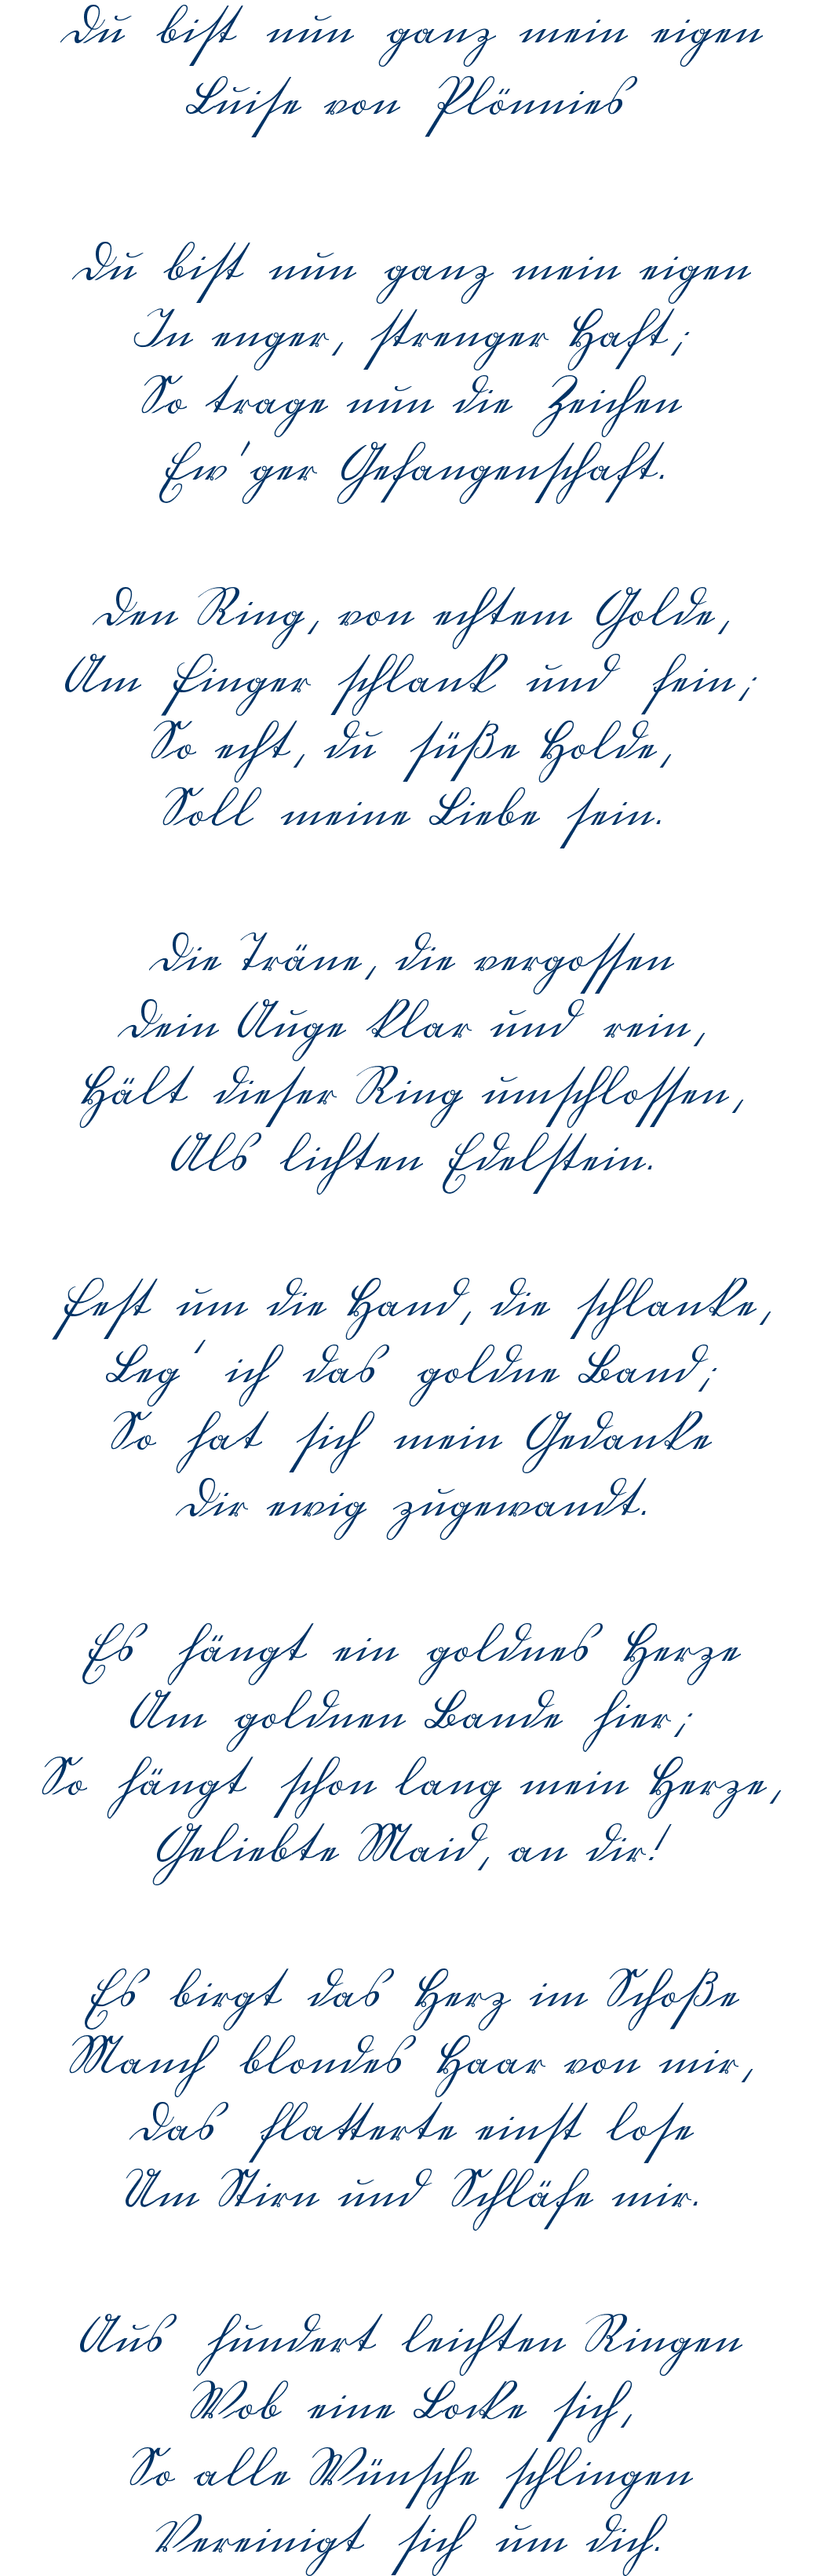 Du bist nun ganz mein eigen
Luise von Plönnies
Du bist nun ganz mein eigen
In enger, strenger Haft;
So trage nun die Zeichen
Ew'ger Gefangenschaft.
Den Ring, von echtem Golde,
Am Finger schlank und fein;
So echt, du süße Holde,
Soll meine Liebe sein.
Die Träne, die vergossen
Dein Auge klar und rein,
Hält dieser Ring umschlossen,
Als lichten Edelstein.
Fest um die Hand, die schlanke,
Leg' ich das goldne Band;
So hat sich mein Gedanke
Dir ewig zugewandt.
Es hängt ein goldnes Herze
Am goldnen Bande hier;
So hängt schon lang mein Herze,
Geliebte Maid, an dir!
Es birgt das Herz im Schoße
Manch blondes Haar von mir,
Das flatterte einst lose
Um Stirn und Schläfe mir.
Aus hundert leichten Ringen
Wob eine Locke sich,
So alle Wünsche schlingen
Vereinigt sich um dich.